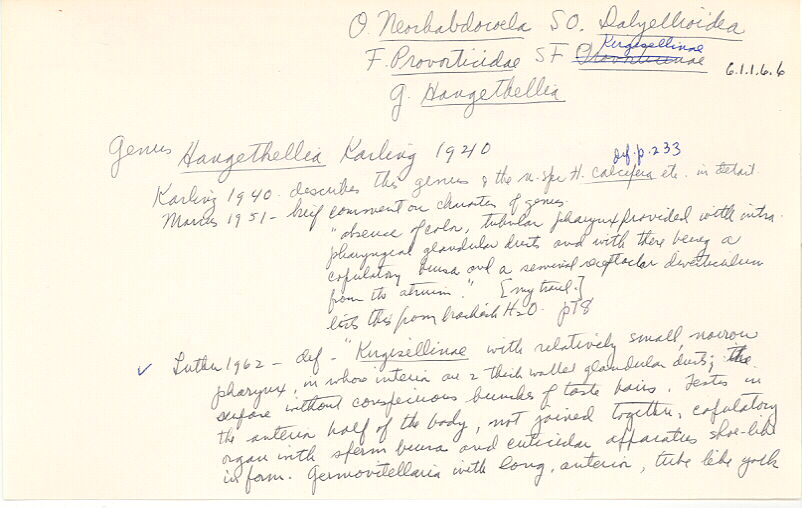 O. Neorhabdocoela SO. Dalyellioidea
Kirgisellinae
F. Provorticidae SF Provorticinae 6.1.1.6.6
G. Haugethellia
Genus Haugethellia Karling 1940 def. p. 233
Karling 1940 - describes this genus & the n. sp. H. calcifera etc. in detail.
Marcus 1951 - brief comment on characters of genus.
"absence of color, tubular pharynx provided with intra-
pharyngeal glandular ducts and with there being a
copulatory bursa and a seminal receptacular diverticulum
from the atrium." [my transl.]
lists this from brackish H2O. p78
✓ Luther 1962 - def - "Kirgisellinae with relatively small, narrow
pharynx, in whose interior are 2 thick walled glandular ducts; the
surface without conspicuous bunches of taste hairs. Testes in
the anterior half of the body, not joined together, copulatory
organ with sperm bursa and cuticular apparatus shoe-like
in form. Germovitellaria with long, anterior, tube like yolk